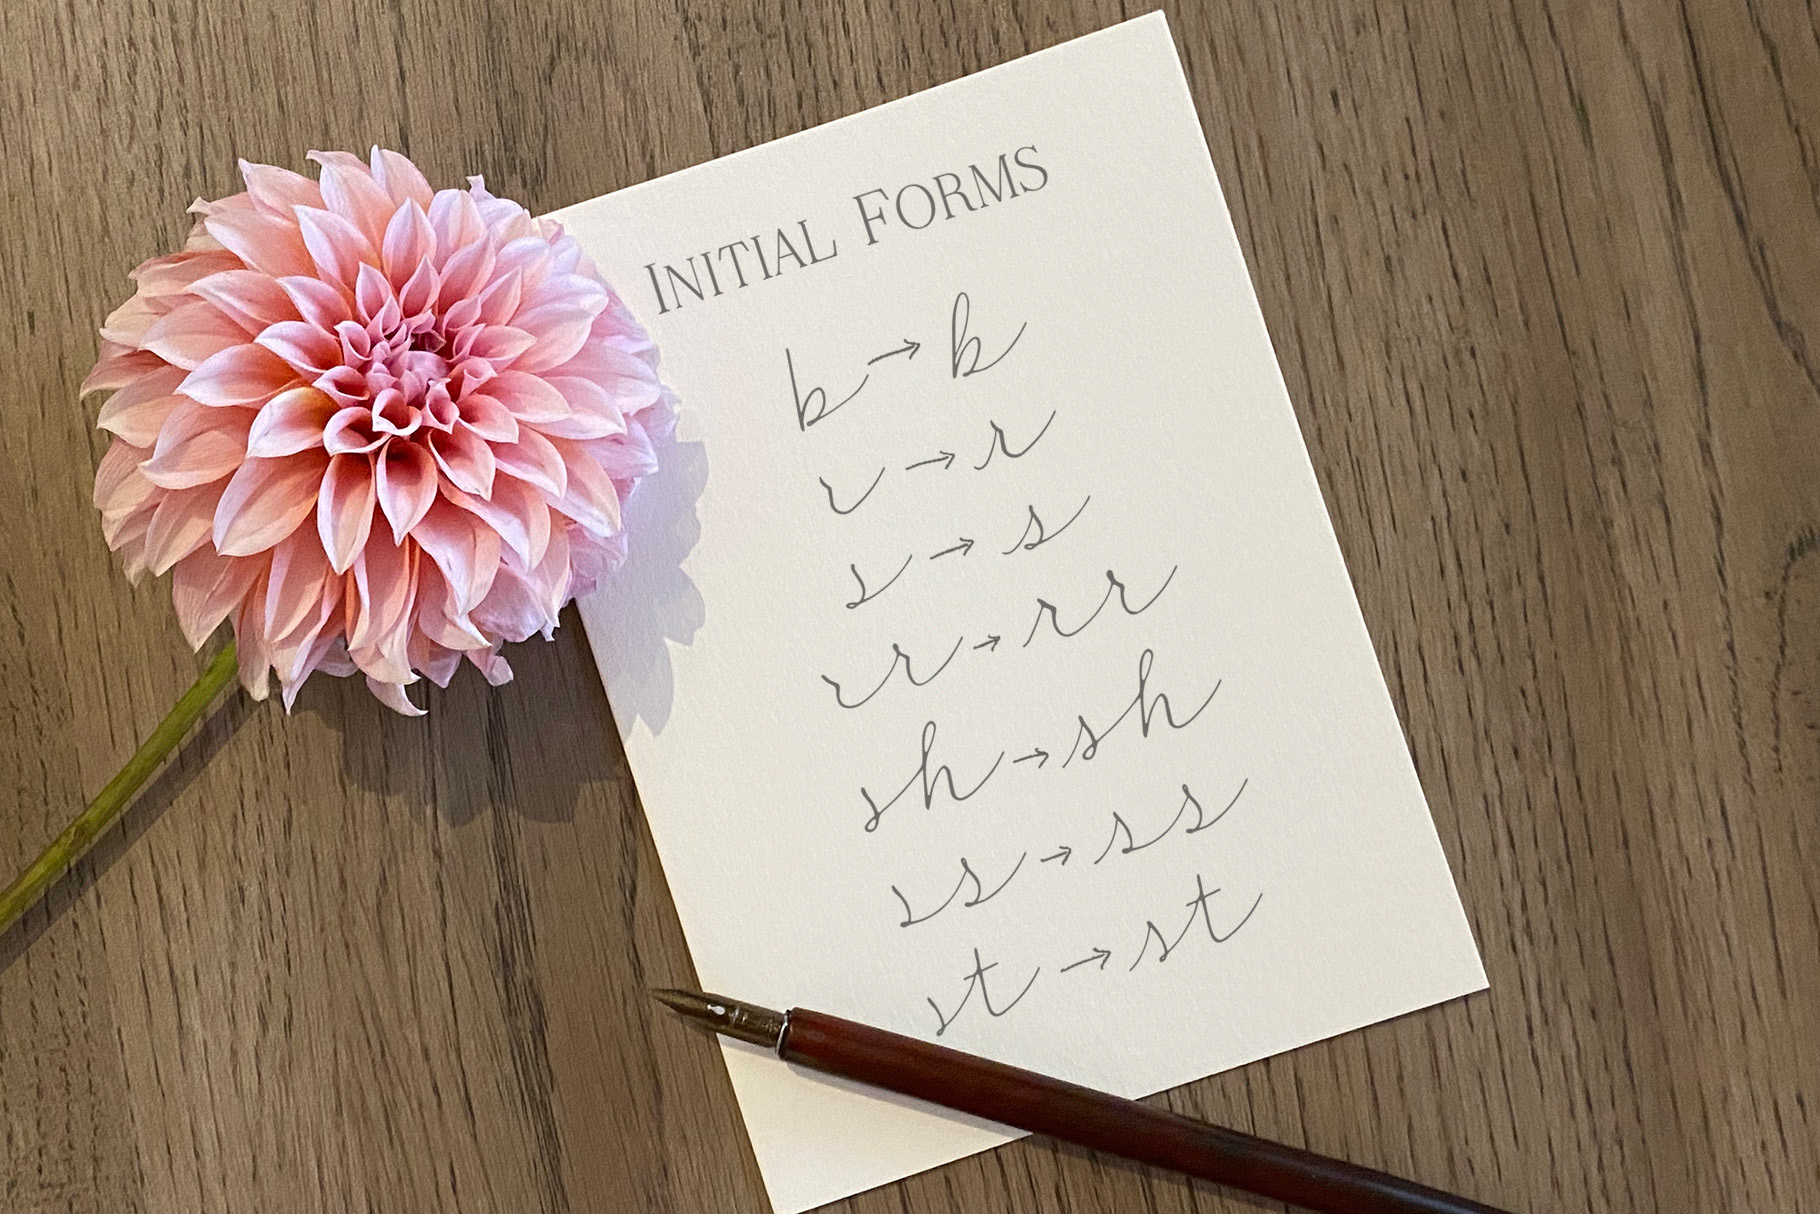 INITIAL FORMS
b → b
r → r
s → s
rr → rr
sh → sh
ss → ss
st → st